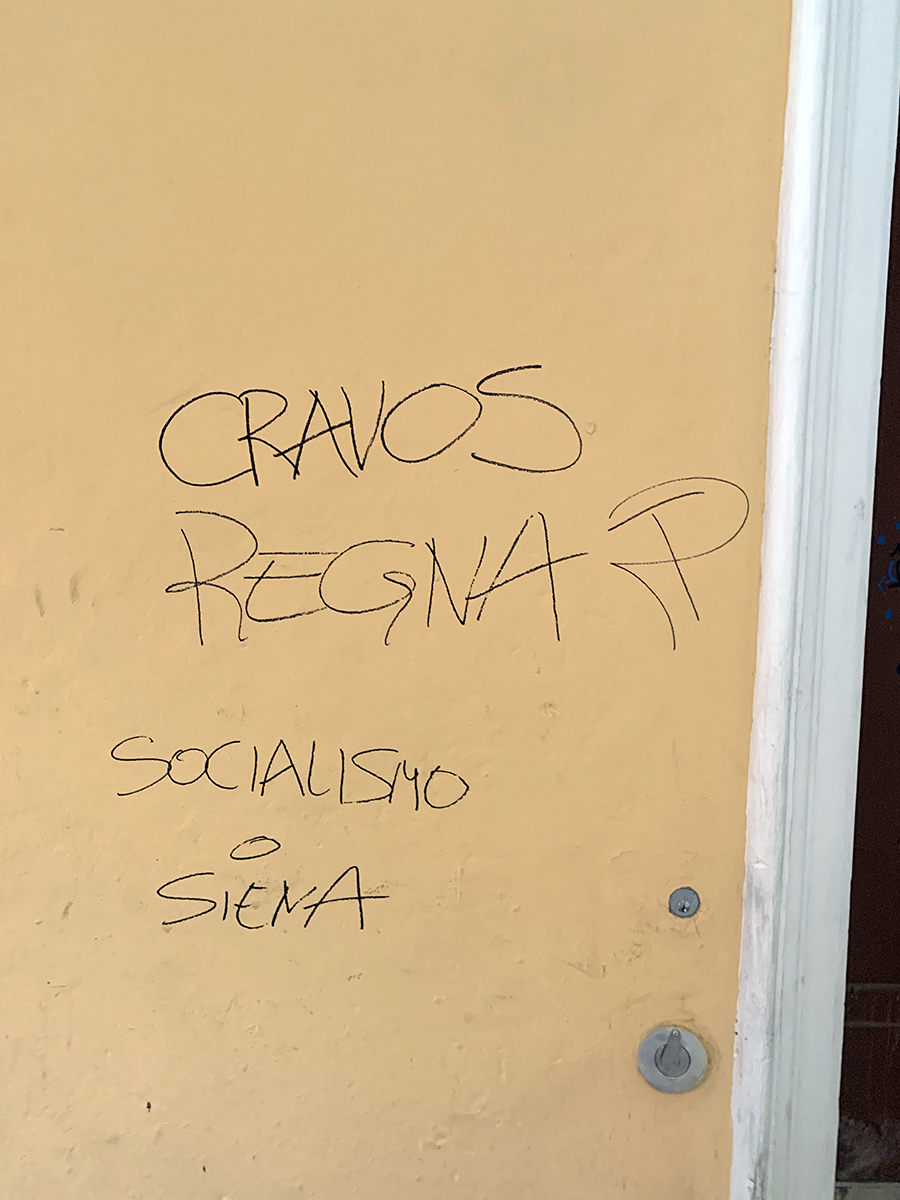 CRAVOS
REGNA
SOCIALISMO
O
SIENA